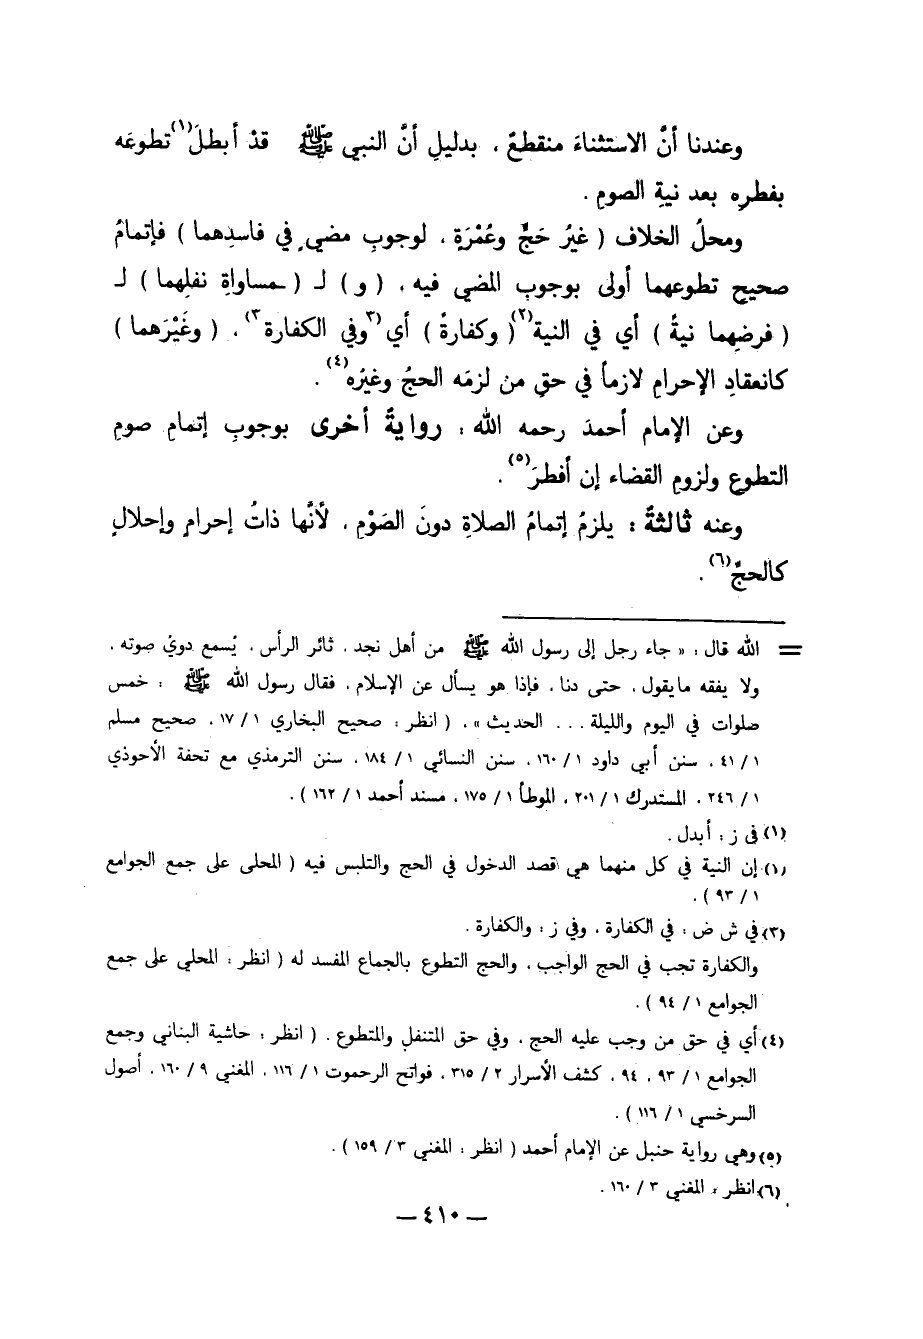 وعندنا أنَّ الاستثناءَ منقطعٌ ، بدليلِ أنَّ النبي ﷺ قدْ أبطلَ(١) تطوعَه
بفطرِه بعد نيةِ الصومِ .
ومحلُ الخلاف ( غيرُ حَجٍّ وعُمْرَةٍ ، لوجوبِ مضي ٍ في فاسدِهما ) فإتمامُ
صحيحِ تطوعهما أولى بوجوبِ المضي فيه ، ( و ) لـ ( ـمساواةِ نفلِهما ) لـ
( فرضِهما نيةً ) أي في النية(٢) ( وكفارةً ) أي (٣وفي الكفارة٣) ، ( وغَيْرَهما )
كانعقادِ الإحرامِ لازماً في حقِ من لزمَه الحجُ وغيرُه(٤) .
وعن الإمام أحمدَ رحمه الله : روايةٌ أخرى بوجوبِ إتمامِ صومِ
التطوعِ ولزومِ القضاء إن أفطرَ(٥) .
وعنه ثالثةٌ : يلزمُ إتمامُ الصلاةِ دونَ الصَوْمِ ، لأنَّها ذاتُ إحرامٍ وإحلالٍ
كالحجِّ(٦) .
= الله قال : « جاء رجل إلى رسول الله ﷺ من أهل نجد ، ثائر الرأس ، يُسمع دويُ صوته ،
ولا يفقه مايقول ، حتى دنا ، فإذا هو يسأل عن الإسلام ، فقال رسول الله ﷺ : خمس
صلوات في اليوم والليلة ... الحديث » ، ( انظر : صحيح البخاري ١ / ١٧ ، صحيح مسلم
١ / ٤١ ، سنن أبي داود ١ / ١٦٠ ، سنن النسائي ١ / ١٨٤ ، سنن الترمذي مع تحفة الأحوذي
١ / ٢٤٦ ، المستدرك ١ / ٢٠١ ، الموطأ ١ / ١٧٥ ، مسند أحمد ١ / ١٦٢ ) .
(١) في ز : أبدل .
(١) إن النية في كل منهما هي قصد الدخول في الحج والتلبس فيه ( المحلى على جمع الجوامع
١ / ٩٣ ) .
(٣) في ش ض : في الكفارة ، وفي ز : والكفارة .
والكفارة تجب في الحج الواجب ، والحج التطوع بالجماع المفسد له ( انظر : المحلي على جمع
الجوامع ١ / ٩٤ ) .
(٤) أي في حق من وجب عليه الحج ، وفي حق المتنفل والمتطوع . ( انظر : حاشية البناني وجمع
الجوامع ١ / ٩٣ ، ٩٤ ، كشف الأسرار ٢ / ٣١٥ ، فواتح الرحموت ١ / ١١٦ ، المغني ٩ / ١٦٠ ، أصول
السرخسي ١ / ١١٦ ) .
(٥) وهي رواية حنبل عن الإمام أحمد ( انظر : المغني ٣ / ١٥٩ ) .
(٦) انظر : المغني ٣ / ١٦٠ .
— ٤١٠ —